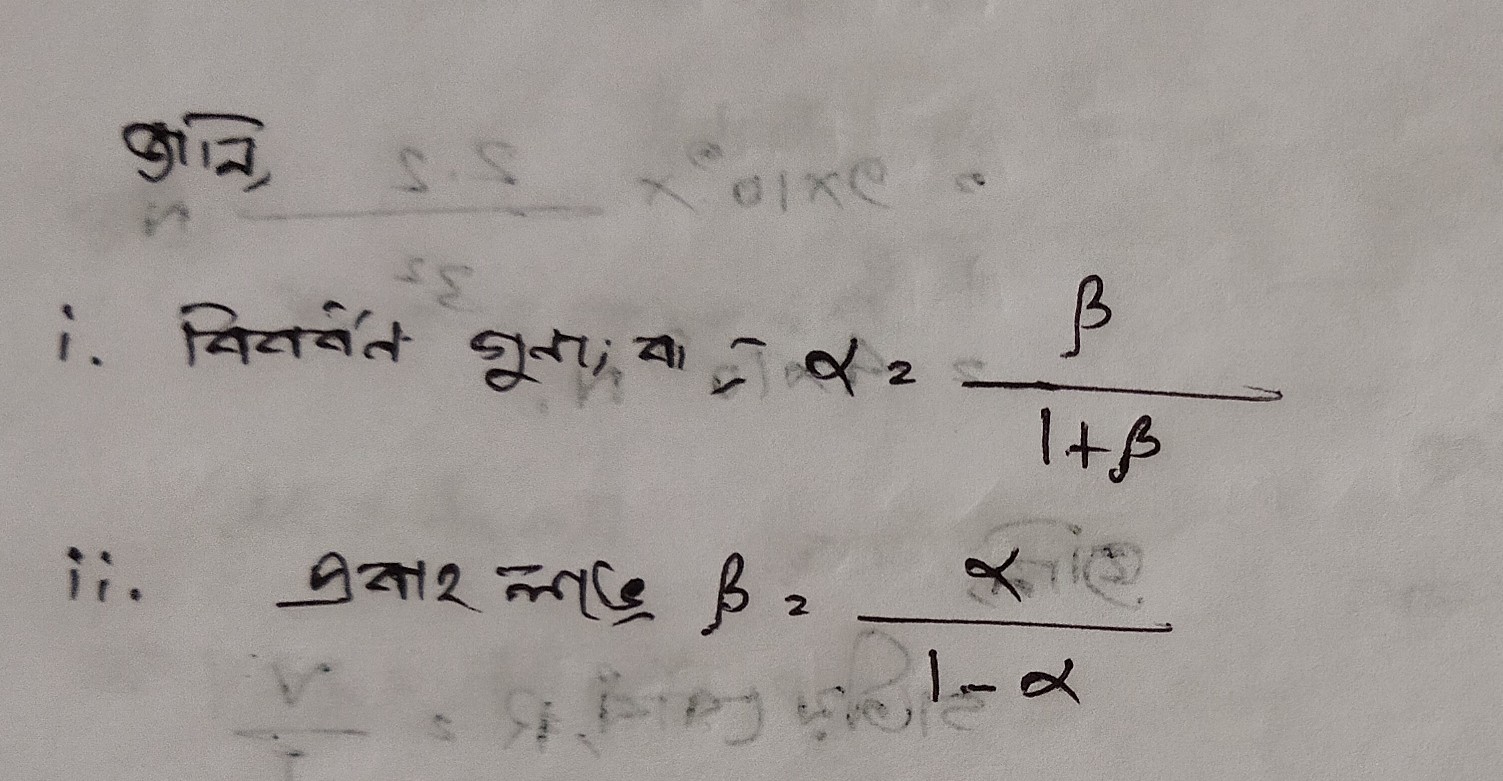 জানি,
i. বিবর্বত গুনা; বা, α = β / 1+β
ii. প্রবাহ লাভ β = α / 1-α